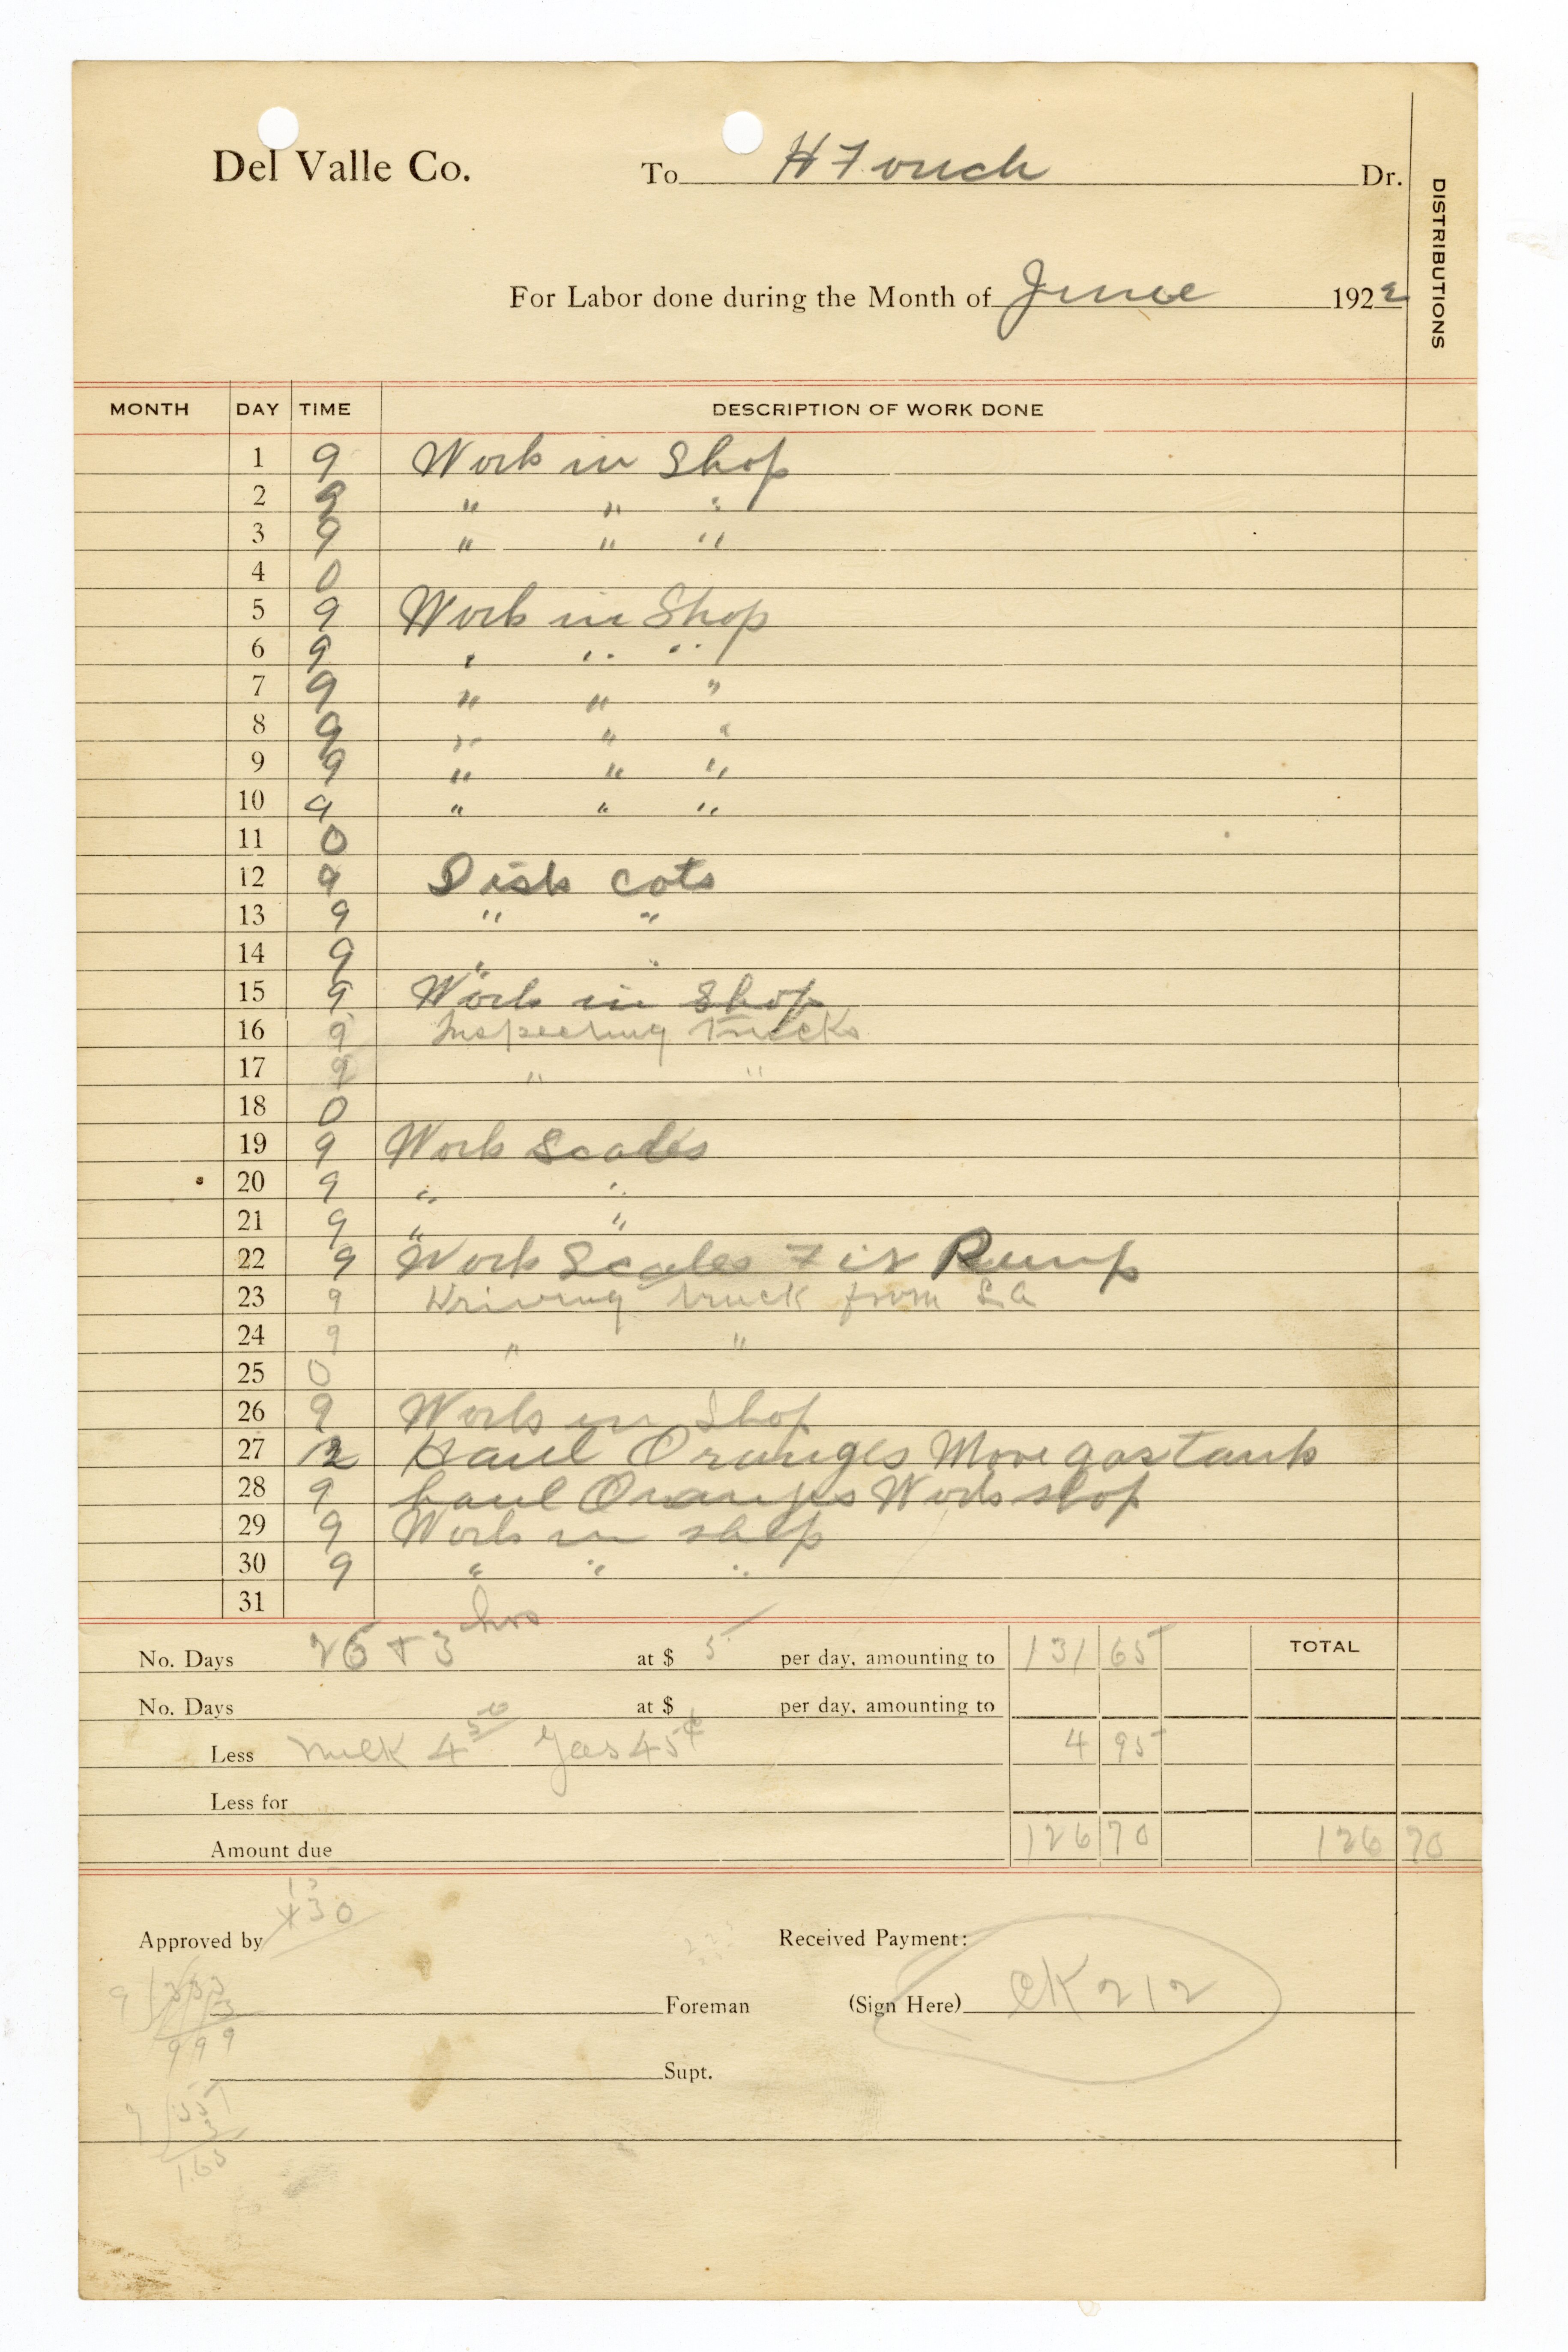 Del Valle Co. To H Fouch Dr.
DISTRIBUTIONS
For Labor done during the Month of June 1922
MONTH DAY TIME DESCRIPTION OF WORK DONE
1 9 Work in Shop
2 9 " " "
3 9 " " "
4 0
5 9 Work in Shop
6 9 " " "
7 9 " " "
8 9 " " "
9 9 " " "
10 9 " " "
11 0
12 9 Disk cots
13 9 " "
14 9 " "
15 9 Work in Shop
16 9 Inspecting trucks
17 9 " "
18 0
19 9 Work Scales
20 9 " "
21 9 " "
22 9 Work Scales Fix Pump
23 9 Driving truck from LA
24 9 " "
25 0
26 9 Work in Shop
27 12 Haul Oranges Move gas tank
28 9 haul Oranges Work shop
29 9 Work in shop
30 9 " " "
31
No. Days 26 + 3 hrs at $ 5 per day, amounting to 131 65 TOTAL
No. Days at $ per day, amounting to
Less milk 4 50 gas 45¢ 4 95
Less for
Amount due 126 70 126 70
130
Approved by Received Payment:
Foreman (Sign Here) CK 212
999
Supt.
9 55
3
1.65